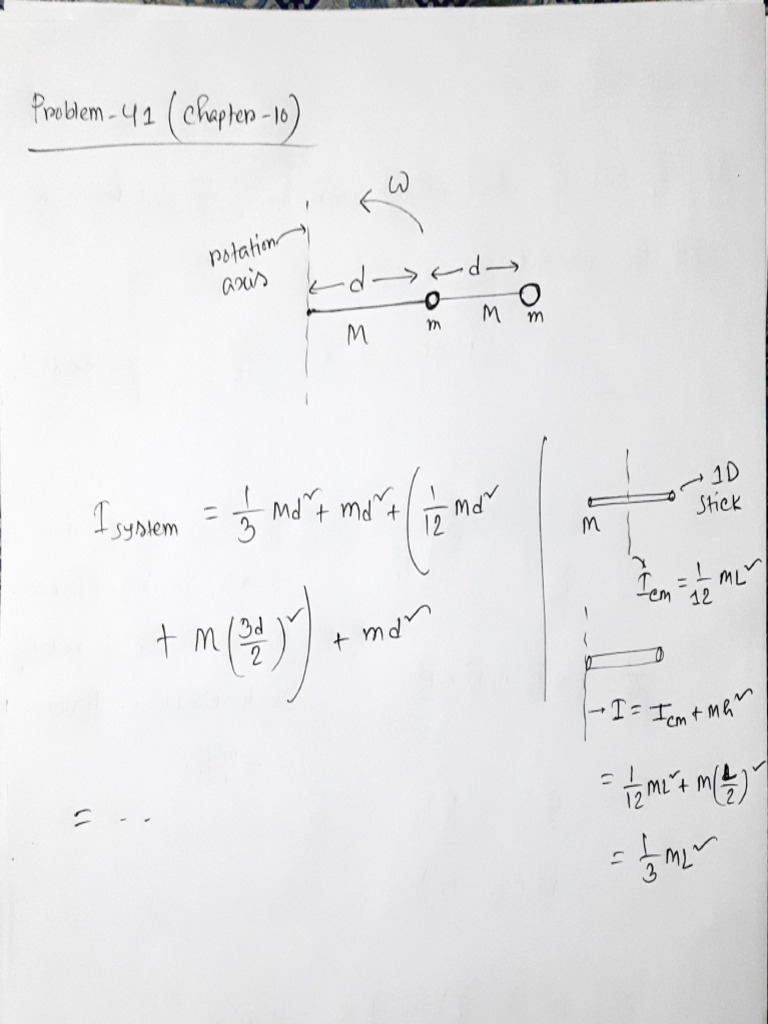 Problem-41 (Chapter-10)
ω
rotation
axis
d d
M m M m
I system = 1/3 Md² + md² + ( 1/12 Md²
+ M (3d/2)² ) + md²
= ..
1D
Stick
M
Icm = 1/12 ML²
→ I = Icm + Mh²
= 1/12 ML² + M(L/2)²
= 1/3 ML²